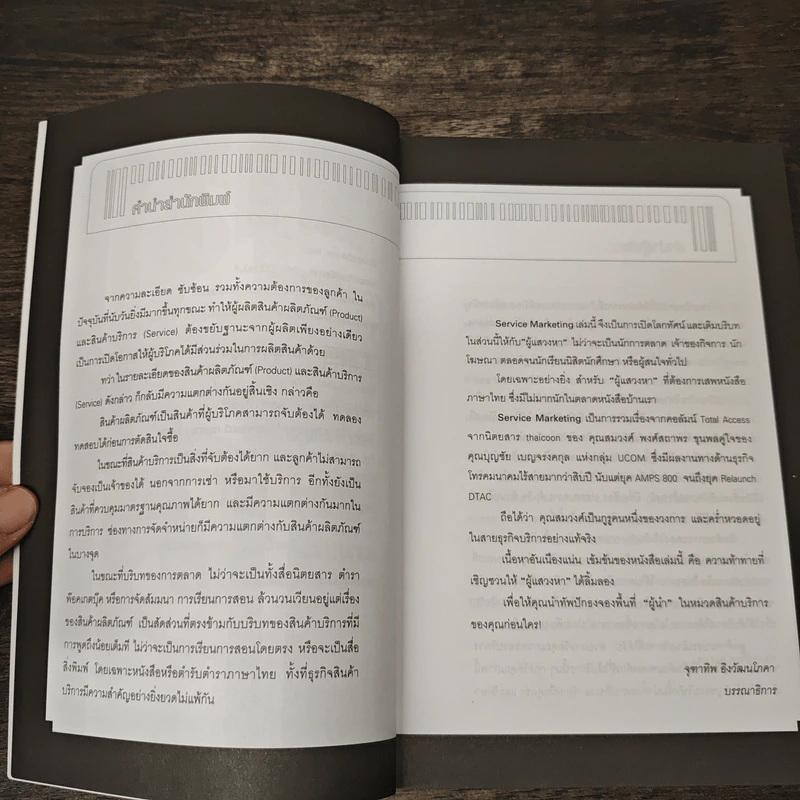 คำนำสำนักพิมพ์
จากความละเอียด ซับซ้อน รวมทั้งความต้องการของลูกค้า ใน
ปัจจุบันที่นับวันยิ่งมีมากขึ้นทุกขณะ ทำให้ผู้ผลิตสินค้าผลิตภัณฑ์ (Product)
และสินค้าบริการ (Service) ต้องขยับฐานะจากผู้ผลิตเพียงอย่างเดียว
เป็นการเปิดโอกาสให้ผู้บริโภคได้มีส่วนร่วมในการผลิตสินค้าด้วย
ทว่า ในรายละเอียดของสินค้าผลิตภัณฑ์ (Product) และสินค้าบริการ
(Service) ดังกล่าว ก็กลับมีความแตกต่างกันอยู่สิ้นเชิง กล่าวคือ
สินค้าผลิตภัณฑ์เป็นสินค้าที่ผู้บริโภคสามารถจับต้องได้ ทดลอง
ทดสอบได้ก่อนการตัดสินใจซื้อ
ในขณะที่สินค้าบริการเป็นสิ่งที่จับต้องได้ยาก และลูกค้าไม่สามารถ
จับจองเป็นเจ้าของได้ นอกจากการเช่า หรือมาใช้บริการ อีกทั้งยังเป็น
สินค้าที่ควบคุมมาตรฐานคุณภาพได้ยาก และมีความแตกต่างกันมากใน
การบริการ ช่องทางการจัดจำหน่ายก็มีความแตกต่างกับสินค้าผลิตภัณฑ์
ในบางจุด
ในขณะที่บริบทของการตลาด ไม่ว่าจะเป็นทั้งสื่อนิตยสาร ตำรา
พ็อคเกตบุ๊ค หรือการจัดสัมมนา การเรียนการสอน ล้วนวนเวียนอยู่แต่เรื่อง
ของสินค้าผลิตภัณฑ์ เป็นสัดส่วนที่ตรงข้ามกับบริบทของสินค้าบริการที่มี
การพูดถึงน้อยเต็มที ไม่ว่าจะเป็นการเรียนการสอนโดยตรง หรือจะเป็นสื่อ
สิ่งพิมพ์ โดยเฉพาะหนังสือหรือตำรับตำราภาษาไทย ทั้งที่ธุรกิจสินค้า
บริการมีความสำคัญอย่างยิ่งยวดไม่แพ้กัน
Service Marketing เล่มนี้ จึงเป็นการเปิดโลกทัศน์ และเติมบริบท
ในส่วนนี้ให้กับ "ผู้แสวงหา" ไม่ว่าจะเป็นนักการตลาด เจ้าของกิจการ นัก
โฆษณา ตลอดจนนักเรียนนิสิตนักศึกษา หรือผู้สนใจทั่วไป
โดยเฉพาะอย่างยิ่ง สำหรับ "ผู้แสวงหา" ที่ต้องการเสพหนังสือ
ภาษาไทย ซึ่งมีไม่มากนักในตลาดหนังสือบ้านเรา
Service Marketing เป็นการรวมเรื่องจากคอลัมน์ Total Access
จากนิตยสาร thaicoon ของ คุณสมวงศ์ พงศ์สถาพร ขุนพลคู่ใจของ
คุณบุญชัย เบญจรงคกุล แห่งกลุ่ม UCOM ซึ่งมีผลงานทางด้านธุรกิจ
โทรคมนาคมไร้สายมากว่าสิบปี นับแต่ยุค AMPS 800 จนถึงยุค Relaunch
DTAC
ถือได้ว่า คุณสมวงศ์เป็นกูรูคนหนึ่งของวงการ และคร่ำหวอดอยู่
ในสายธุรกิจบริการอย่างแท้จริง
เนื้อหาอันเนืองแน่น เข้มข้นของหนังสือเล่มนี้ คือ ความท้าทายที่
เชิญชวนให้ "ผู้แสวงหา" ได้ลิ้มลอง
เพื่อให้คุณนำทัพปักธงจองพื้นที่ "ผู้นำ" ในหมวดสินค้าบริการ
ของคุณก่อนใคร!
จุฑาทิพ อิงวัฒนโภคา
บรรณาธิการ